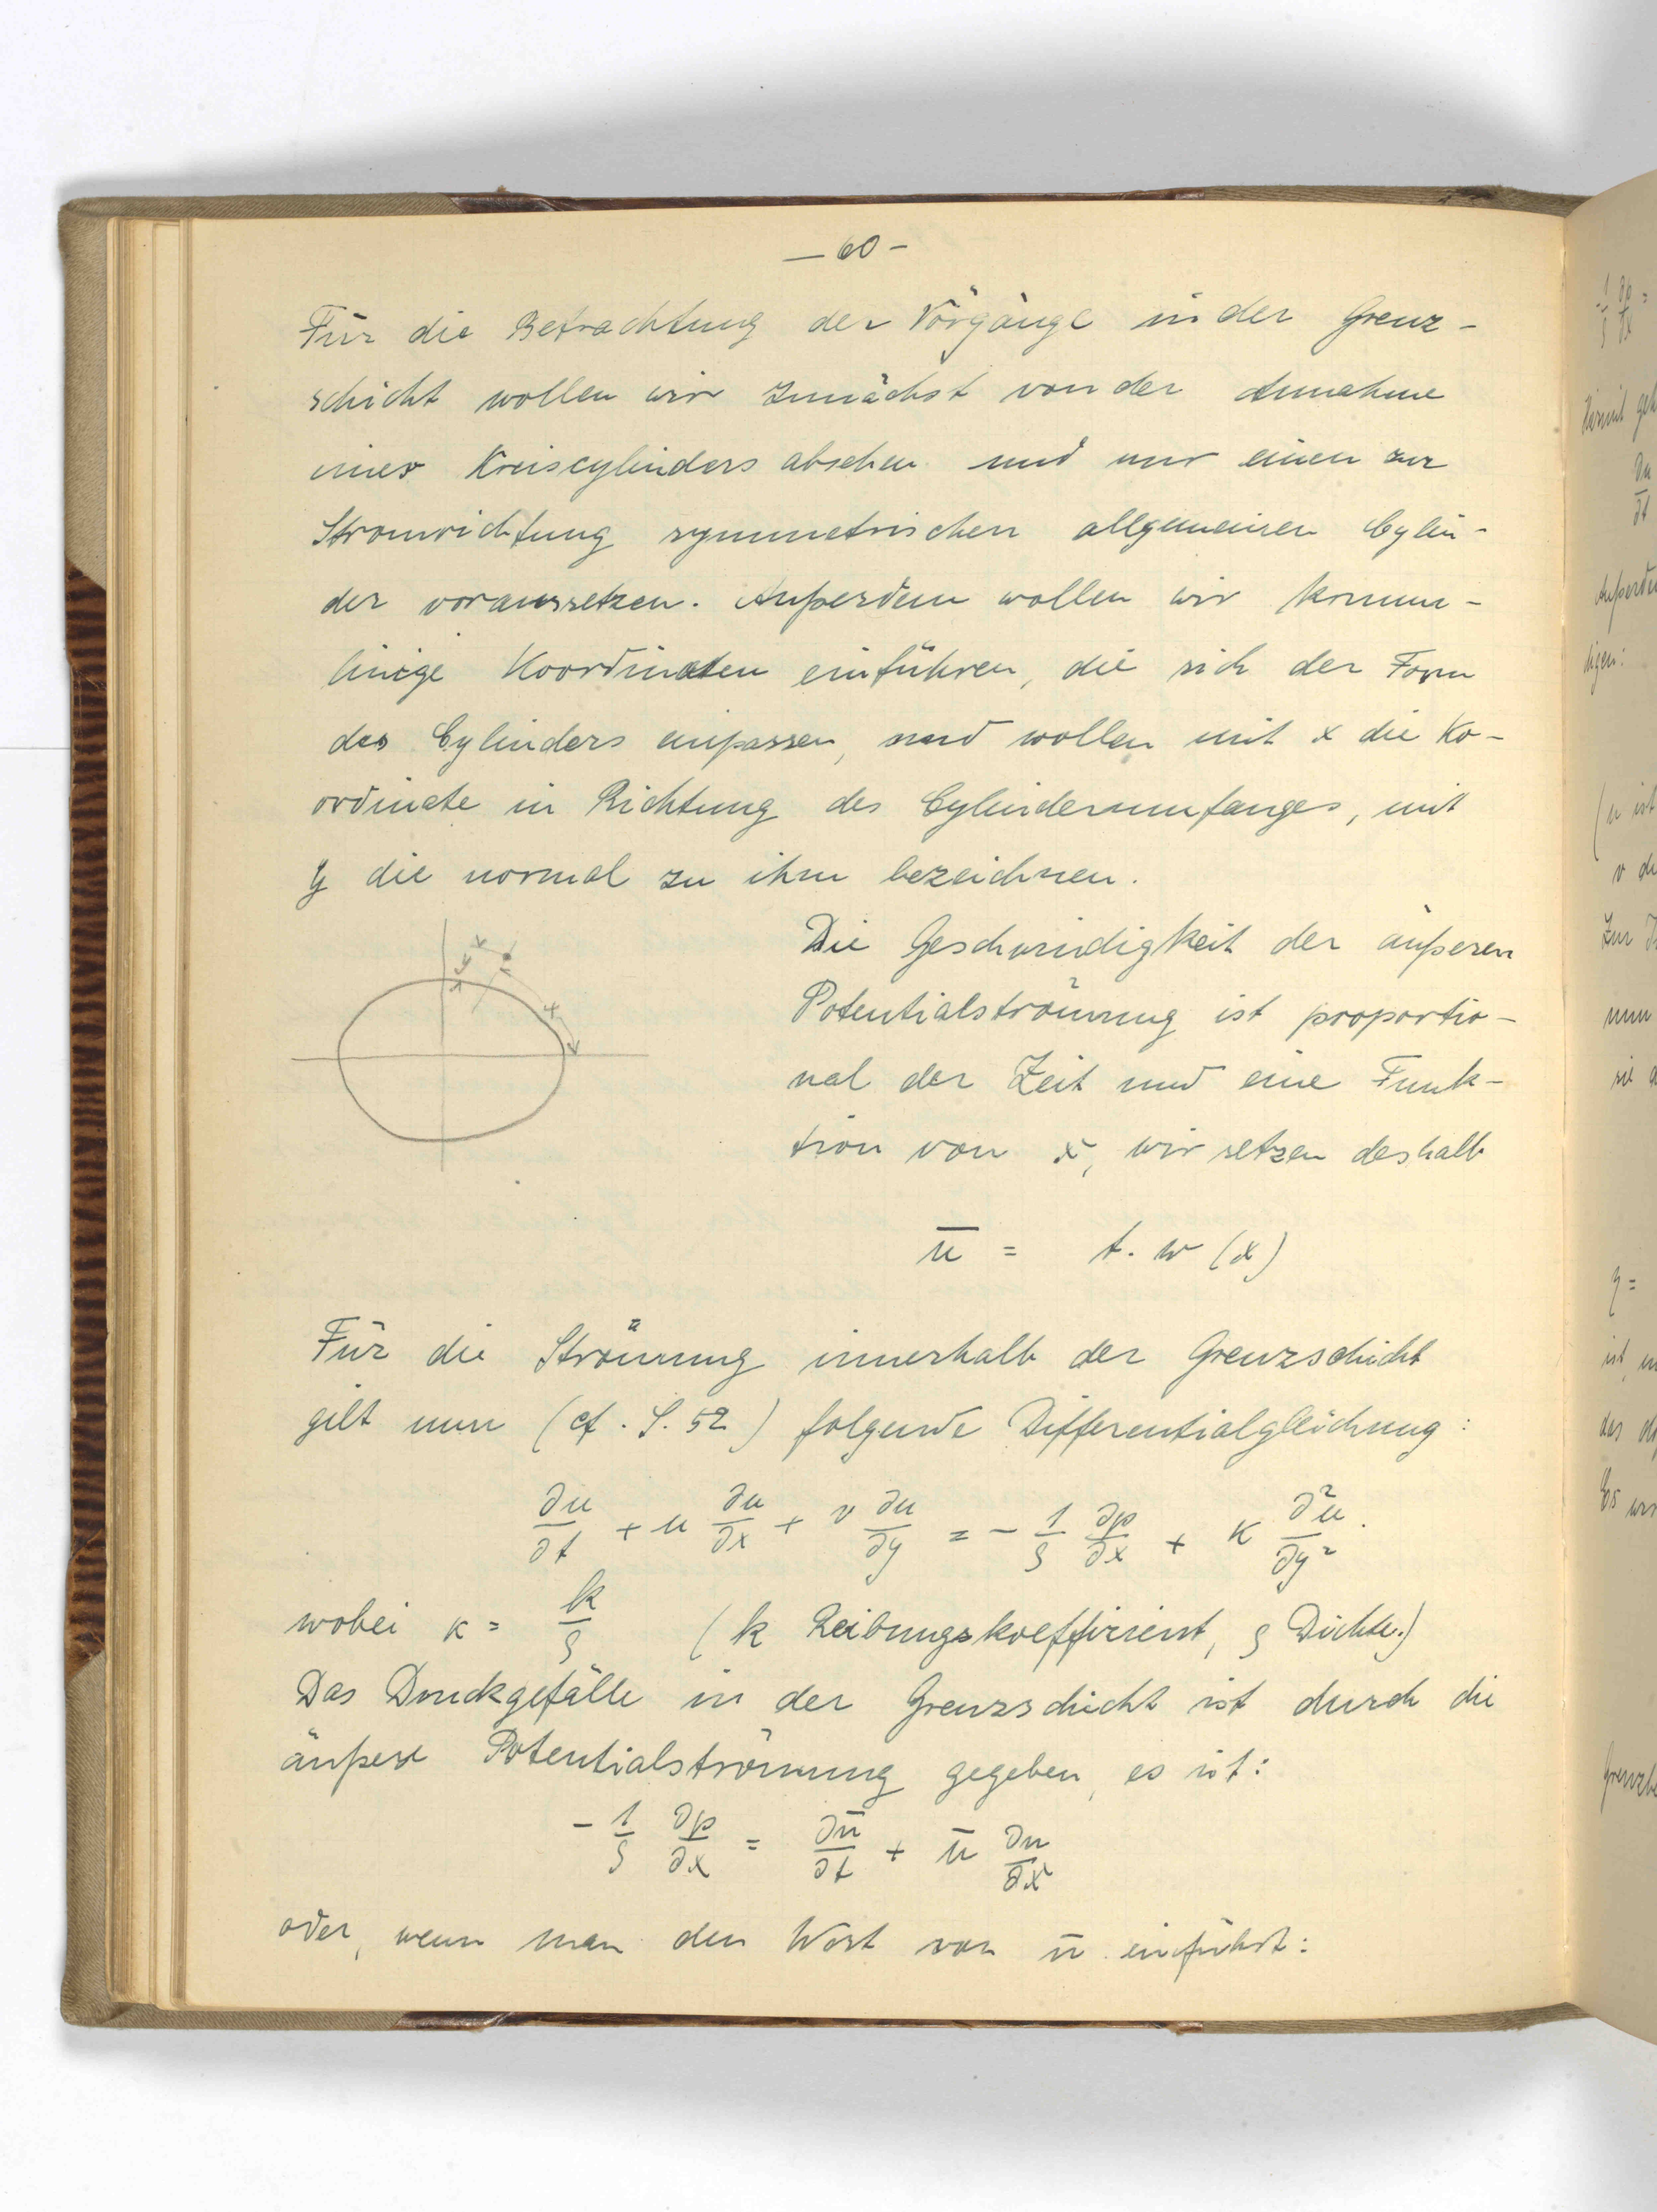 — 60 —
Für die Betrachtung der Vorgänge in der Grenz-
schicht wollen wir zunächst von der Annahme
eines Kreiscylinders absehen und nur einen zur
Stromrichtung symmetrischen allgemeinen Cylin-
der voraussetzen. Außerdem wollen wir krumm-
linige Koordinaten einführen, die sich der Form
des Cylinders anpassen, und wollen mit x die Ko-
ordinate in Richtung des Cylinderumfanges, mit
y die normal zu ihm bezeichnen.
Die Geschwindigkeit der äußeren
Potentialströmung ist proportio-
nal der Zeit und eine Funk-
tion von x, wir setzen deshalb
ū = t. w (x)
Für die Strömung innerhalb der Grenzschicht
gilt nun (cf. S. 52) folgende Differentialgleichung:
∂u/∂t + u ∂u/∂x + v ∂u/∂y = - 1/ρ ∂p/∂x + κ ∂²u/∂y².
wobei κ = k/ρ (k Reibungskoeffizient, ρ Dichte.)
Das Druckgefälle in der Grenzschicht ist durch die
äußere Potentialströmung gegeben, es ist:
- 1/ρ ∂p/∂x = ∂ū/∂t + ū ∂u/∂x
oder, wenn man den Wert von ū einführt: